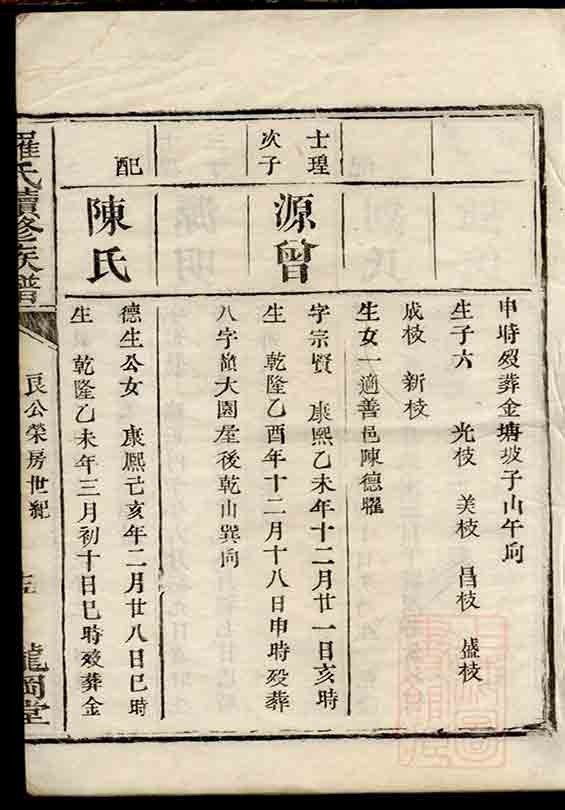 申時歿葬金塘坡子山午向
生子六　光枝　美枝　昌枝　盛枝
成枝　新枝
生女一適善邑陳德曜
士瑝
次子
源曾
字宗賢　康熙乙未年十二月廿一日亥時
生　乾隆乙酉年十二月十八日申時歿葬
八字嶺大園屋後乾山巽向
配
陳氏
德生公女　康熙己亥年二月廿八日巳時
生　乾隆乙未年三月初十日巳時歿葬金
羅氏續修族譜
良公榮房世紀
龍岡堂